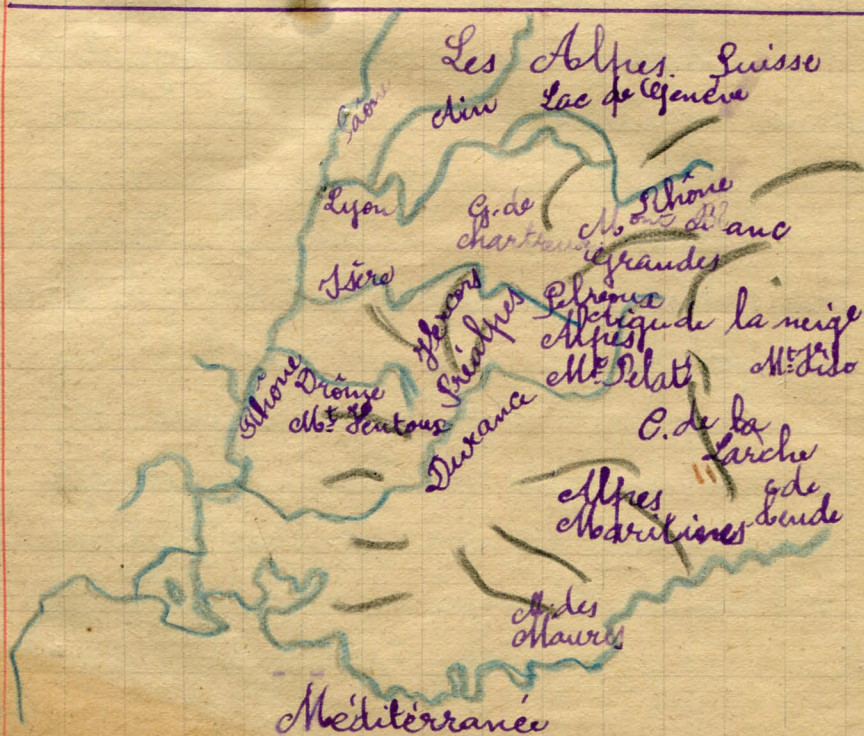 Les Alpes. Suisse
Saône
Ain
Lac de Genève
Lyon
G. de
chartreuse
Rhône
Mont Blanc
Grandes
Isère
Vercors
Préalpes
Pelvoux
Aig de la neige
Alpes
Mt Pelat
Mt Viso
Rhône
Drôme
Mt Ventoux
Durance
C. de la
Larche
Alpes
Maritimes
c de
tende
M. des
Maures
Méditérranée